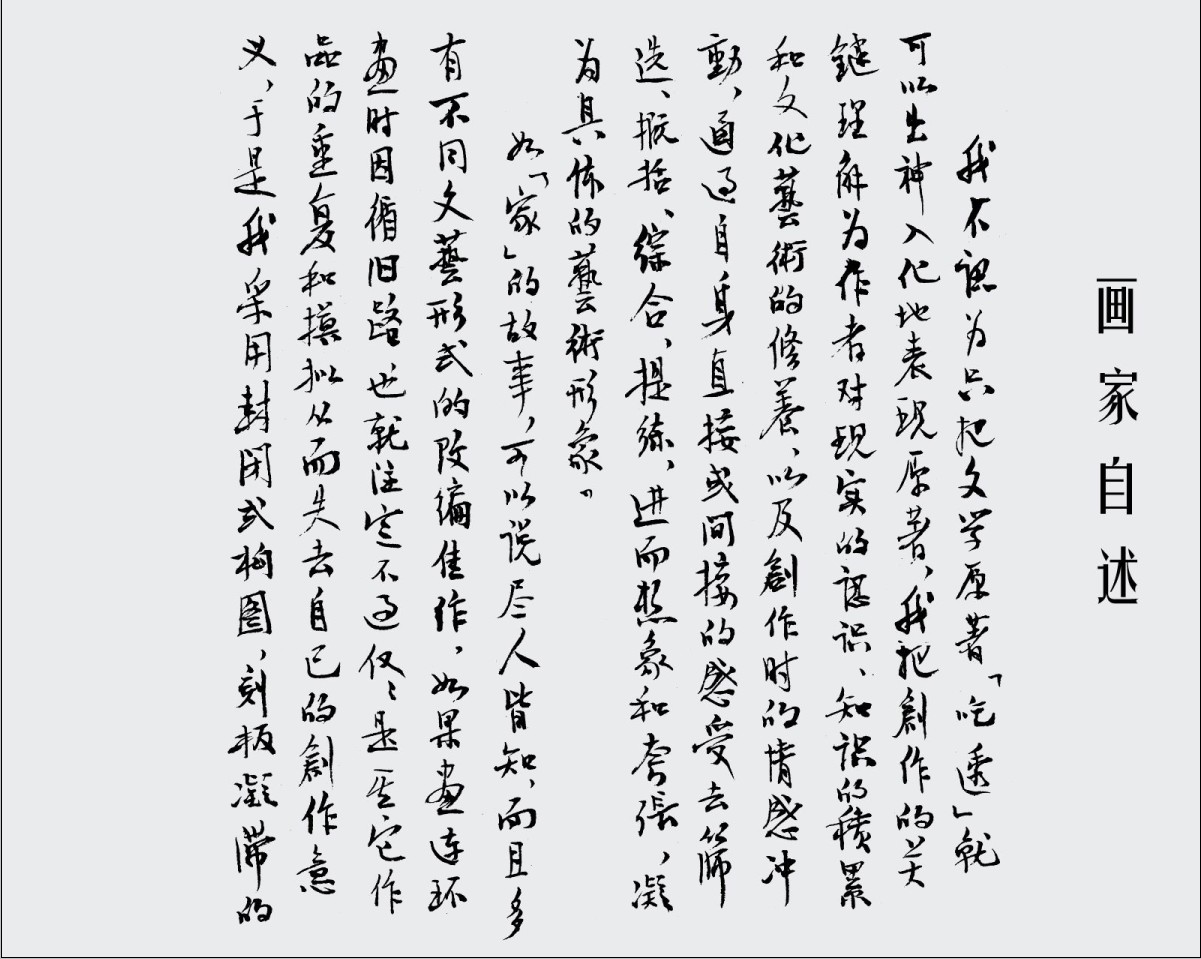 画家自述
我不認为只把文学原著「吃透」就
可以出神入化地表现原著，我把創作的关
鍵理解为作者对现实的認识、知识的積累
和文化藝術的修養、以及創作时的情感冲
動，通过自身直接或间接的感受去筛
选、概括、綜合、提練、进而想象和夸張，凝
为具体的藝術形象。
如「家」的故事，可以说尽人皆知，而且多
有不同文藝形式的改編佳作，如果画连环
画时因循旧路也就注定不过仅仅是其它作
品的重复和摸拟从而失去自己的創作意
义，于是我采用封闭式构图，刻板凝滞的